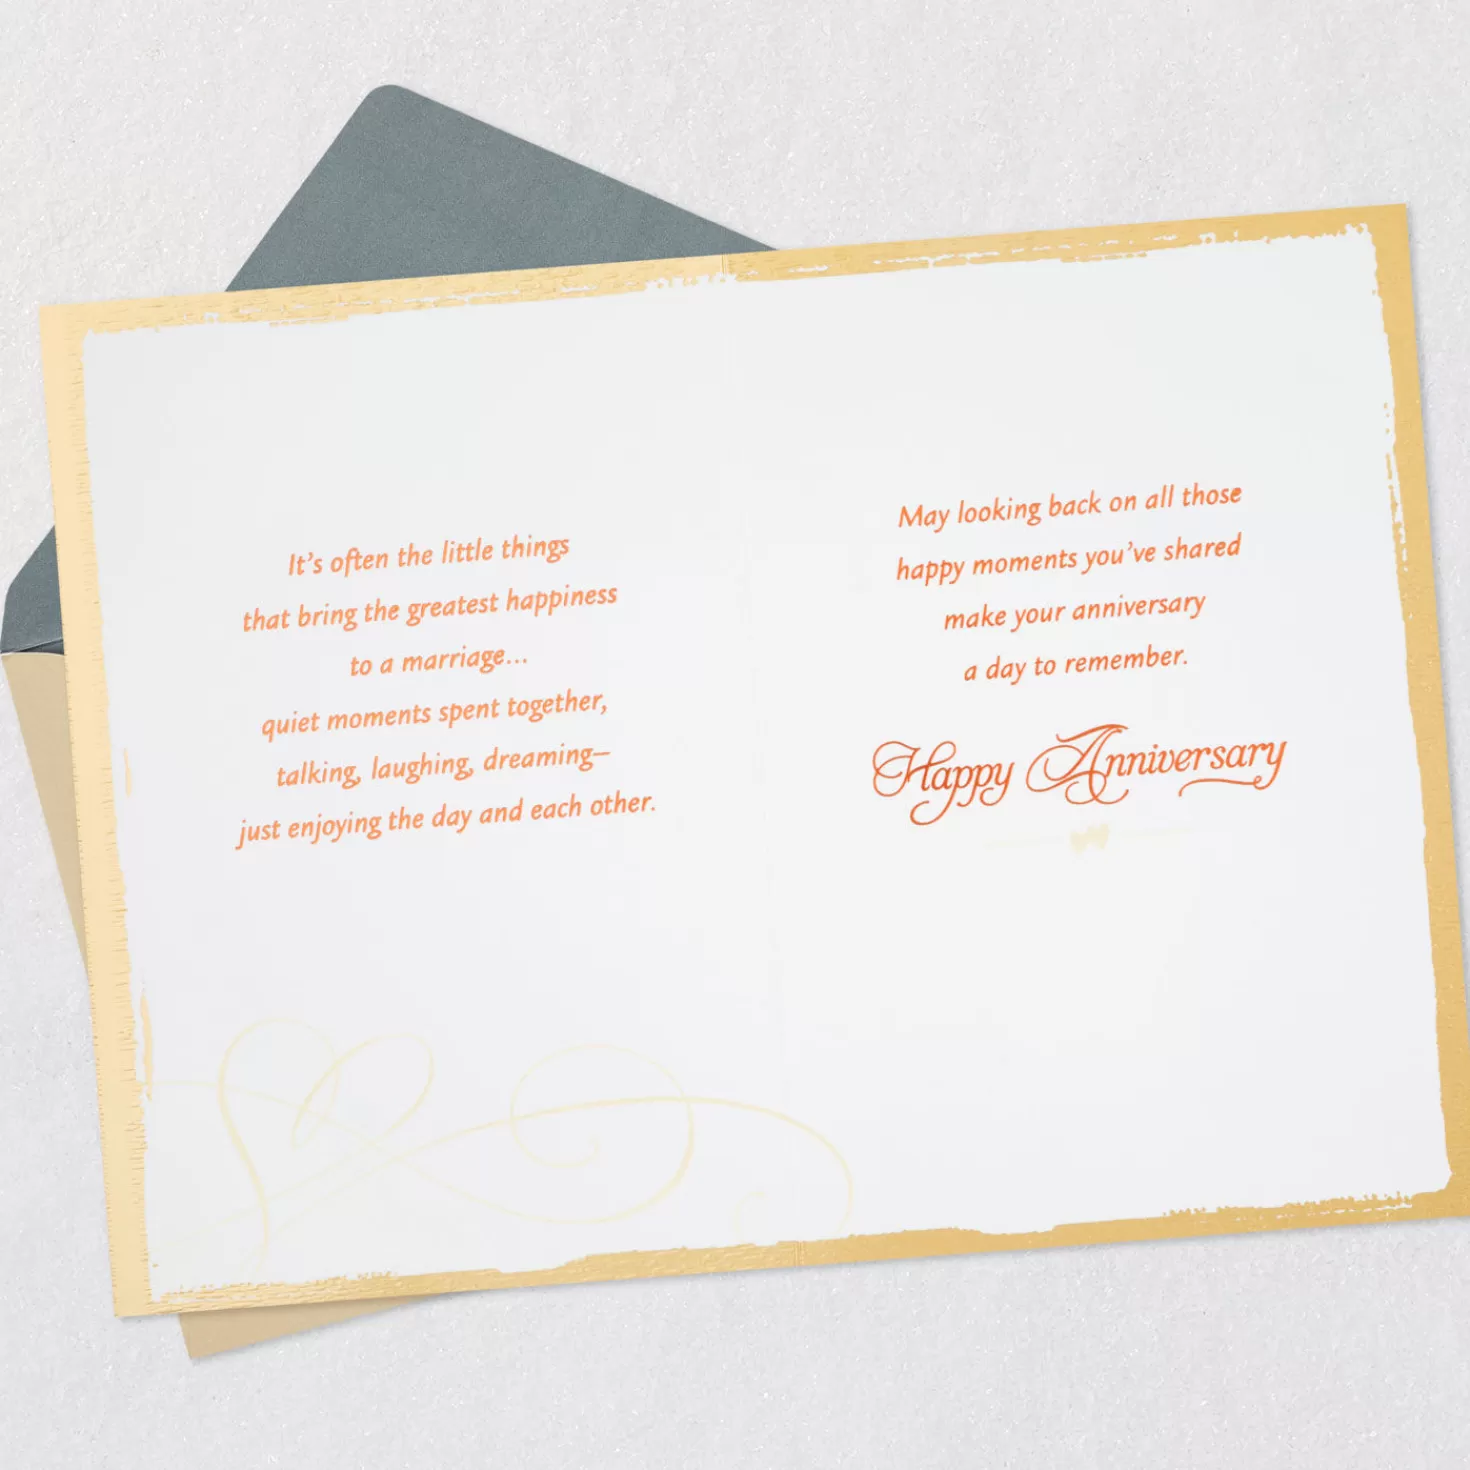 It's often the little things
that bring the greatest happiness
to a marriage...
quiet moments spent together,
talking, laughing, dreaming–
just enjoying the day and each other.
May looking back on all those
happy moments you've shared
make your anniversary
a day to remember.
Happy Anniversary